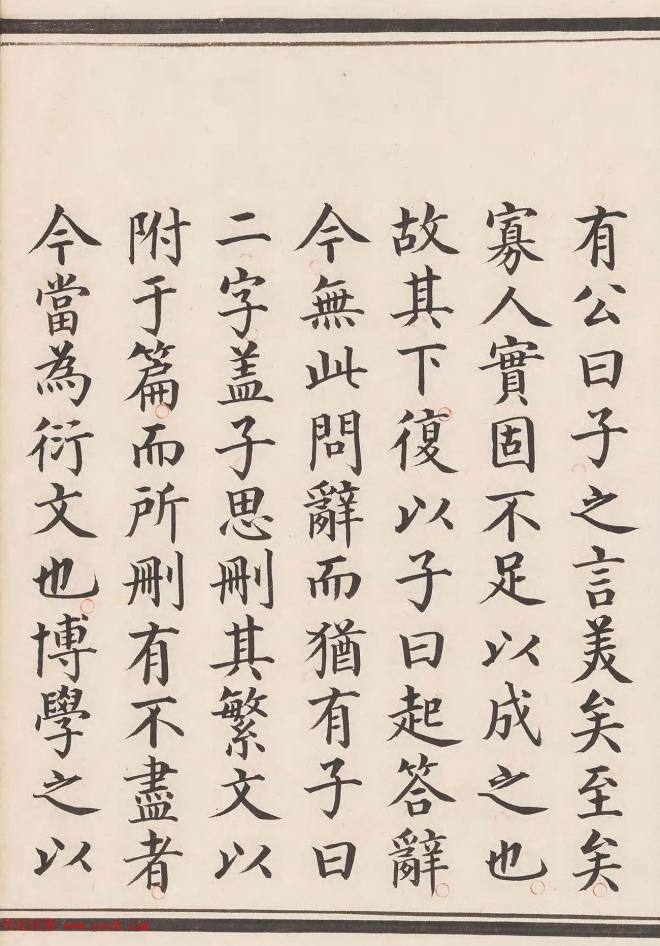 有公曰子之言美矣至矣
寡人實固不足以成之也
故其下復以子曰起答辭
今無此問辭而猶有子曰
二字盖子思刪其繁文以
附于篇而所刪有不盡者
今當為衍文也博學之以